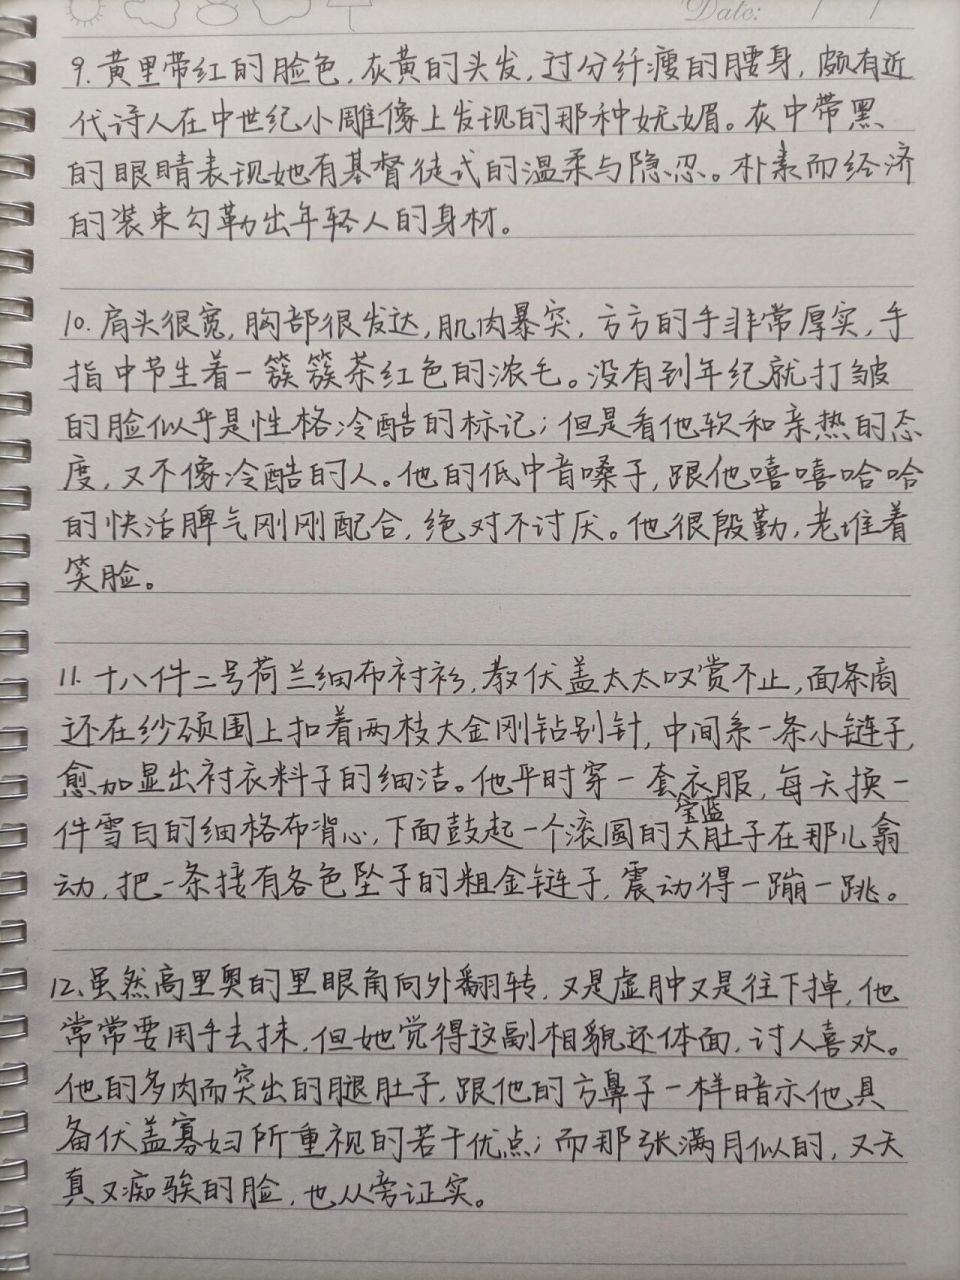 Date: / /
9. 黄里带红的脸色,灰黄的头发,过分纤瘦的腰身,颇有近
代诗人在中世纪小雕像上发现的那种妩媚。灰中带黑
的眼睛表现她有基督徒式的温柔与隐忍。朴素而经济
的装束勾勒出年轻人的身材。
10. 肩头很宽,胸部很发达,肌肉暴突,方方的手非常厚实,手
指中节生着一簇簇茶红色的浓毛。没有到年纪就打皱
的脸似乎是性格冷酷的标记;但是看他软和亲热的态
度,又不像冷酷的人。他的低中音嗓子,跟他嘻嘻哈哈
的快活脾气刚刚配合,绝对不讨厌。他很殷勤,老堆着
笑脸。
11. 十八件二号荷兰细布衬衫,教伏盖太太叹赏不止,面条商
还在纱颈围上扣着两枝大金刚钻别针,中间系一条小链子,
愈加显出衬衣料子的细洁。他平时穿一套衣服,每天换一
宝蓝
件雪白的细格布背心,下面鼓起一个滚圆的大肚子在那儿翕
动,把一条挂有各色坠子的粗金链子,震动得一蹦一跳。
12、虽然高里奥的里眼角向外翻转,又是虚肿又是往下掉,他
常常要用手去抹,但她觉得这副相貌还体面,讨人喜欢。
他的多肉而突出的腿肚子,跟他的方鼻子一样暗示他具
备伏盖寡妇所重视的若干优点;而那张满月似的,又天
真又痴骇的脸,也从旁证实。